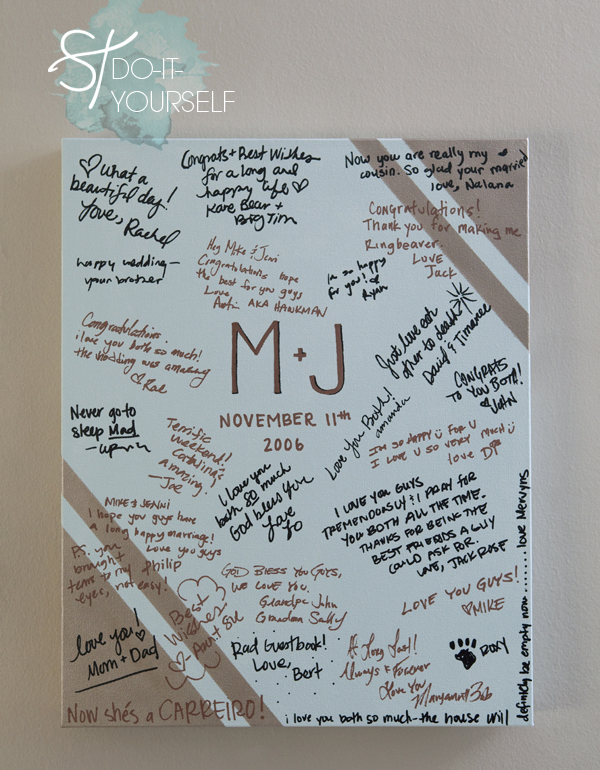 ST DO-IT-
YOURSELF
♡ What a
beautiful day!
Love, Rachel
Congrats + Best Wishes
for a long and
happy life ♡
Kare Bear +
Big Tim
Now you are really my
cousin. So glad your married
love, Nalana
CONGRATULATIONS!
Thank you for making me
Ringbeaver.
LUVE
Jack
happy wedding –
your brother
Hey Mike & Jeni
Congratulations hope
the best for you guys
Love
AKA HAWKMAN
im so happy
for you!
Ryan
Just love each
other to death
David & Timanee
Congratulations.
i love you both so much!
the wedding was amazing
♡ Rae
M + J
NOVEMBER 11th
2006
CONGRATS
TO YOU BOTH!
♡ JOHN
Never go to
sleep Mad
Terrific
weekend!
Catalina's
amazing.
— Joe
Love You Both!
amanda
IM SO HAPPY FOR U
I LOVE U SO VERY MUCH
love
I love you
both so much
God bless you
Love
Jo
I LOVE YOU GUYS
TREMENDOUSLY! I PRAY FOR
YOU BOTH ALL THE TIME.
THANKS FOR BEING THE
BEST FRIENDS A GUY
COULD ASK FOR.
LOVE, JACK ROSE
MIKE & JENNI
I hope you guys have
a long happy marriage!
Love you guys
Philip
P.S. you
brought
tears to my
eyes, not easy!
GOD BLESS YOU GUYS,
WE LOVE YOU.
Grandpa John
Grandma Sally
LOVE YOU GUYS!
♡ MIKE
love you! ♡
Mom + Dad
Best
Wishes
♡ – Aunt Su
Rad Guestbook!
Love,
Bert
At Long Last!
Always & Forever
Love You
Maryann & Bob
ROXY
Now shés a CARREIRO!
i love you both so much – the house will
definitely be empty now ....... love Mervyns